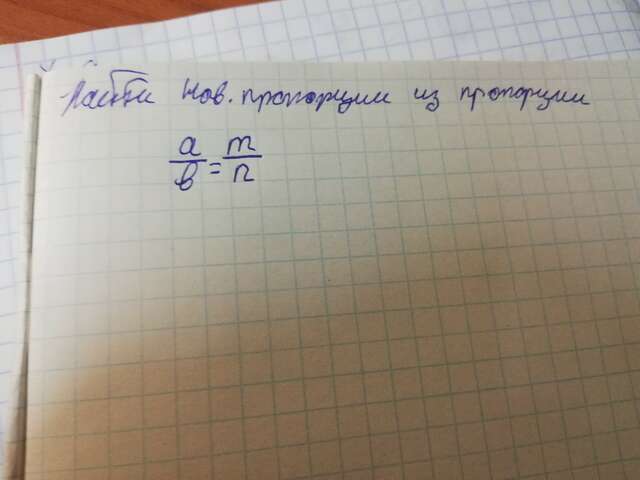 Найти нов. пропорции из пропорции
a/b = m/n